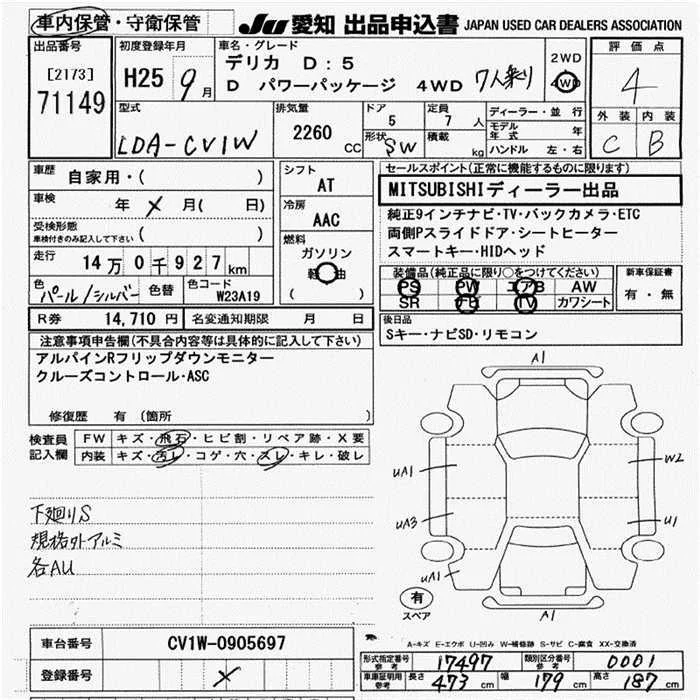 車内保管・守衛保管
JU 愛知 出品申込書 JAPAN USED CAR DEALERS ASSOCIATION
出品番号
[2173]
71149
初度登録年月
H25 9月
車名・グレード
デリカ D:5
D パワーパッケージ 4WD 7人乗り
2WD
4WD
評価点
4
外装 内装
C B
型式
LDA-CV1W
排気量
2260 CC
ドア
5
定員
7 人
形状
SW
積載
kg
ディーラー・並行
モデル年式 年
ハンドル 左・右
車歴 自家用・( )
車検 年 × 月( 日)
受検形態
車検付きのみ記入して下さい ( )
走行 14万0千927km
色 パール/シルバー 色替 色コード W23A19
シフト
AT
冷房
AAC
燃料
ガソリン
軽油
( )
セールスポイント(正常に機能するものに限ります)
MITSUBISHIディーラー出品
純正9インチナビ・TV・バックカメラ・ETC
両側Pスライドドア・シートヒーター
スマートキー・HIDヘッド
装備品(純正品に限り○をつけてください)
PS PW エアB AW
SR ナビ TV カワシート
新車保証書
有・無
R券 14,710 円 名変通知期限 月 日
後日品
Sキー・ナビSD・リモコン
注意事項申告欄(不具合内容等は具体的に記入して下さい)
アルパインRフリップダウンモニター
クルーズコントロール・ASC
修復歴 有(箇所 )
検査員記入欄
FW キズ・飛石・ヒビ割・リペア跡・X要
内装 キズ・汚レ・コゲ・穴・スレ・キレ・破レ
下廻りS
規格外アルミ
各AU
A1
UA1
W2
UA3
U1
UA1
A1
有
スペア
A-キズ E-エクボ U-凹み W-補修跡 S-サビ C-腐食 XX-交換済
車台番号 CV1W-0905697
登録番号 ×
形式指定番号 参考 17497 類別区分番号 参考 0001
車庫証明用 参考 長さ 473cm 幅 179cm 高さ 187cm